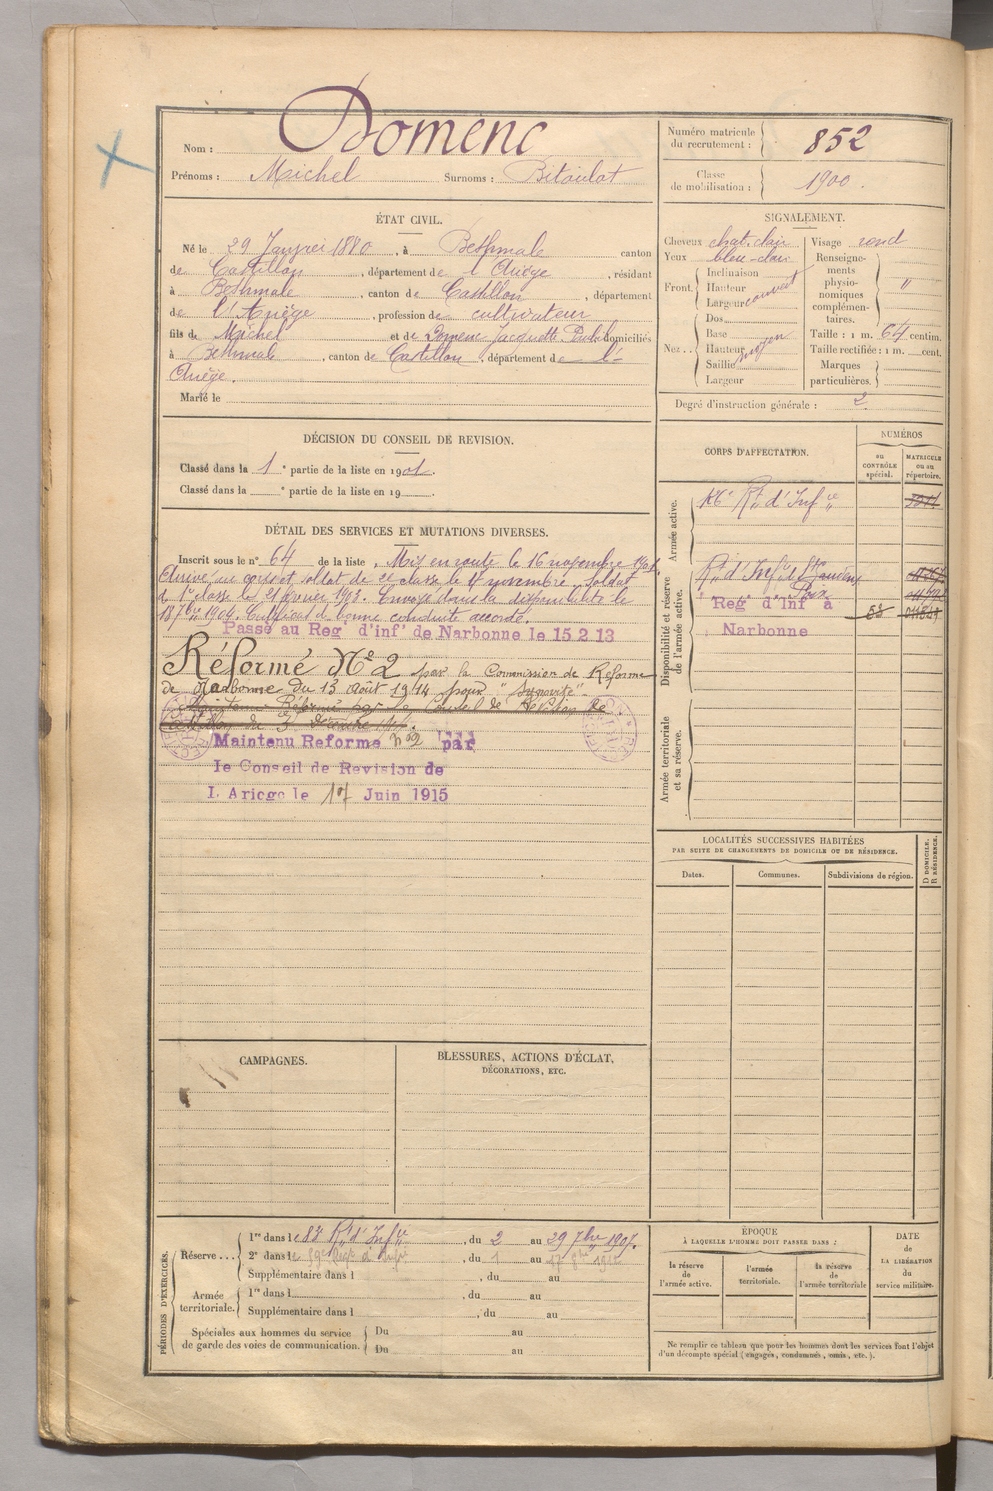 Nom : Domenc
Prénoms : Michel Surnoms : Bitaulat
Numéro matricule du recrutement : 852
Classe de mobilisation : 1900.
ÉTAT CIVIL.
Né le 29 Janvier 1880, à Bethmale canton
de Castillon, département de l'Ariège, résidant
à Bethmale, canton de Castillon, département
de l'Ariège, profession de cultivateur
fils de Michel et de Domenc Jacquette Paule domiciliés
à Bethmale, canton de Castillon, département de l'-
Ariège.
Marié le
SIGNALEMENT.
Cheveux chat. clair
Yeux bleu-clair
Front. Inclinaison
Hauteur
Largeur couvert
Nez.. Dos
Base
Hauteur moyen
Saillie
Largeur
Visage rond
Renseignements physionomiques complémentaires. "
Taille : 1 m. 64 centim.
Taille rectifiée : 1 m. cent.
Marques particulières.
Degré d'instruction générale : 2
DÉCISION DU CONSEIL DE REVISION.
Classé dans la 1e partie de la liste en 1901.
Classé dans la e partie de la liste en 19
DÉTAIL DES SERVICES ET MUTATIONS DIVERSES.
Inscrit sous le n° 64 de la liste, Mis en route le 16 novembre 1901.
Arrivé au corps et soldat de 2e classe le novembre. Soldat
de 1re classe le 21 février 1903. Envoyé dans la disponibilité le
18 7bre 1904. Certificat de bonne conduite accordé.
Passé au Reg d'inf de Narbonne le 15 2 13
Réformé N° 2 par la Commission de Réforme
de Narbonne du 13 Août 1914 pour "
Maintenu Réformé par le Conseil de Révision de
Castillon du Décembre 1914.
Maintenu Reforme n°2 par
le Conseil de Revision de
l'Ariege le 17 Juin 1915
CORPS D'AFFECTATION.
NUMÉROS
AU CONTRÔLE spécial.
MATRICULE ou au répertoire.
Armée active.
Rt d'Infie
Disponibilité et réserve de l'armée active.
Rt d'Infie de St Gaudens
Reg d'Inf à
Narbonne
Armée territoriale et sa réserve.
LOCALITÉS SUCCESSIVES HABITÉES
PAR SUITE DE CHANGEMENTS DE DOMICILE OU DE RÉSIDENCE.
Dates.
Communes.
Subdivisions de région.
D DOMICILE.
R RÉSIDENCE.
CAMPAGNES.
BLESSURES, ACTIONS D'ÉCLAT,
DÉCORATIONS, ETC.
PÉRIODES D'EXERCICES.
Réserve... 1re dans le 83 Rt d'Infie, du 2 au 29 7bre 1907.
2e dans le 59e Regt d'Infie, du 1 au 17 8bre 1912
Supplémentaire dans l , du au
Armée territoriale. 1re dans l , du au
Supplémentaire dans l , du au
Spéciales aux hommes du service
de garde des voies de communication.
Du au
Du au
ÉPOQUE
À LAQUELLE L'HOMME DOIT PASSER DANS :
la réserve de l'armée active.
l'armée territoriale.
la réserve de l'armée territoriale
DATE de LA LIBÉRATION du service militaire.
Ne remplir ce tableau que pour les hommes dont les services font l'objet
d'un décompte spécial (engagés, condamnés, omis, etc.).